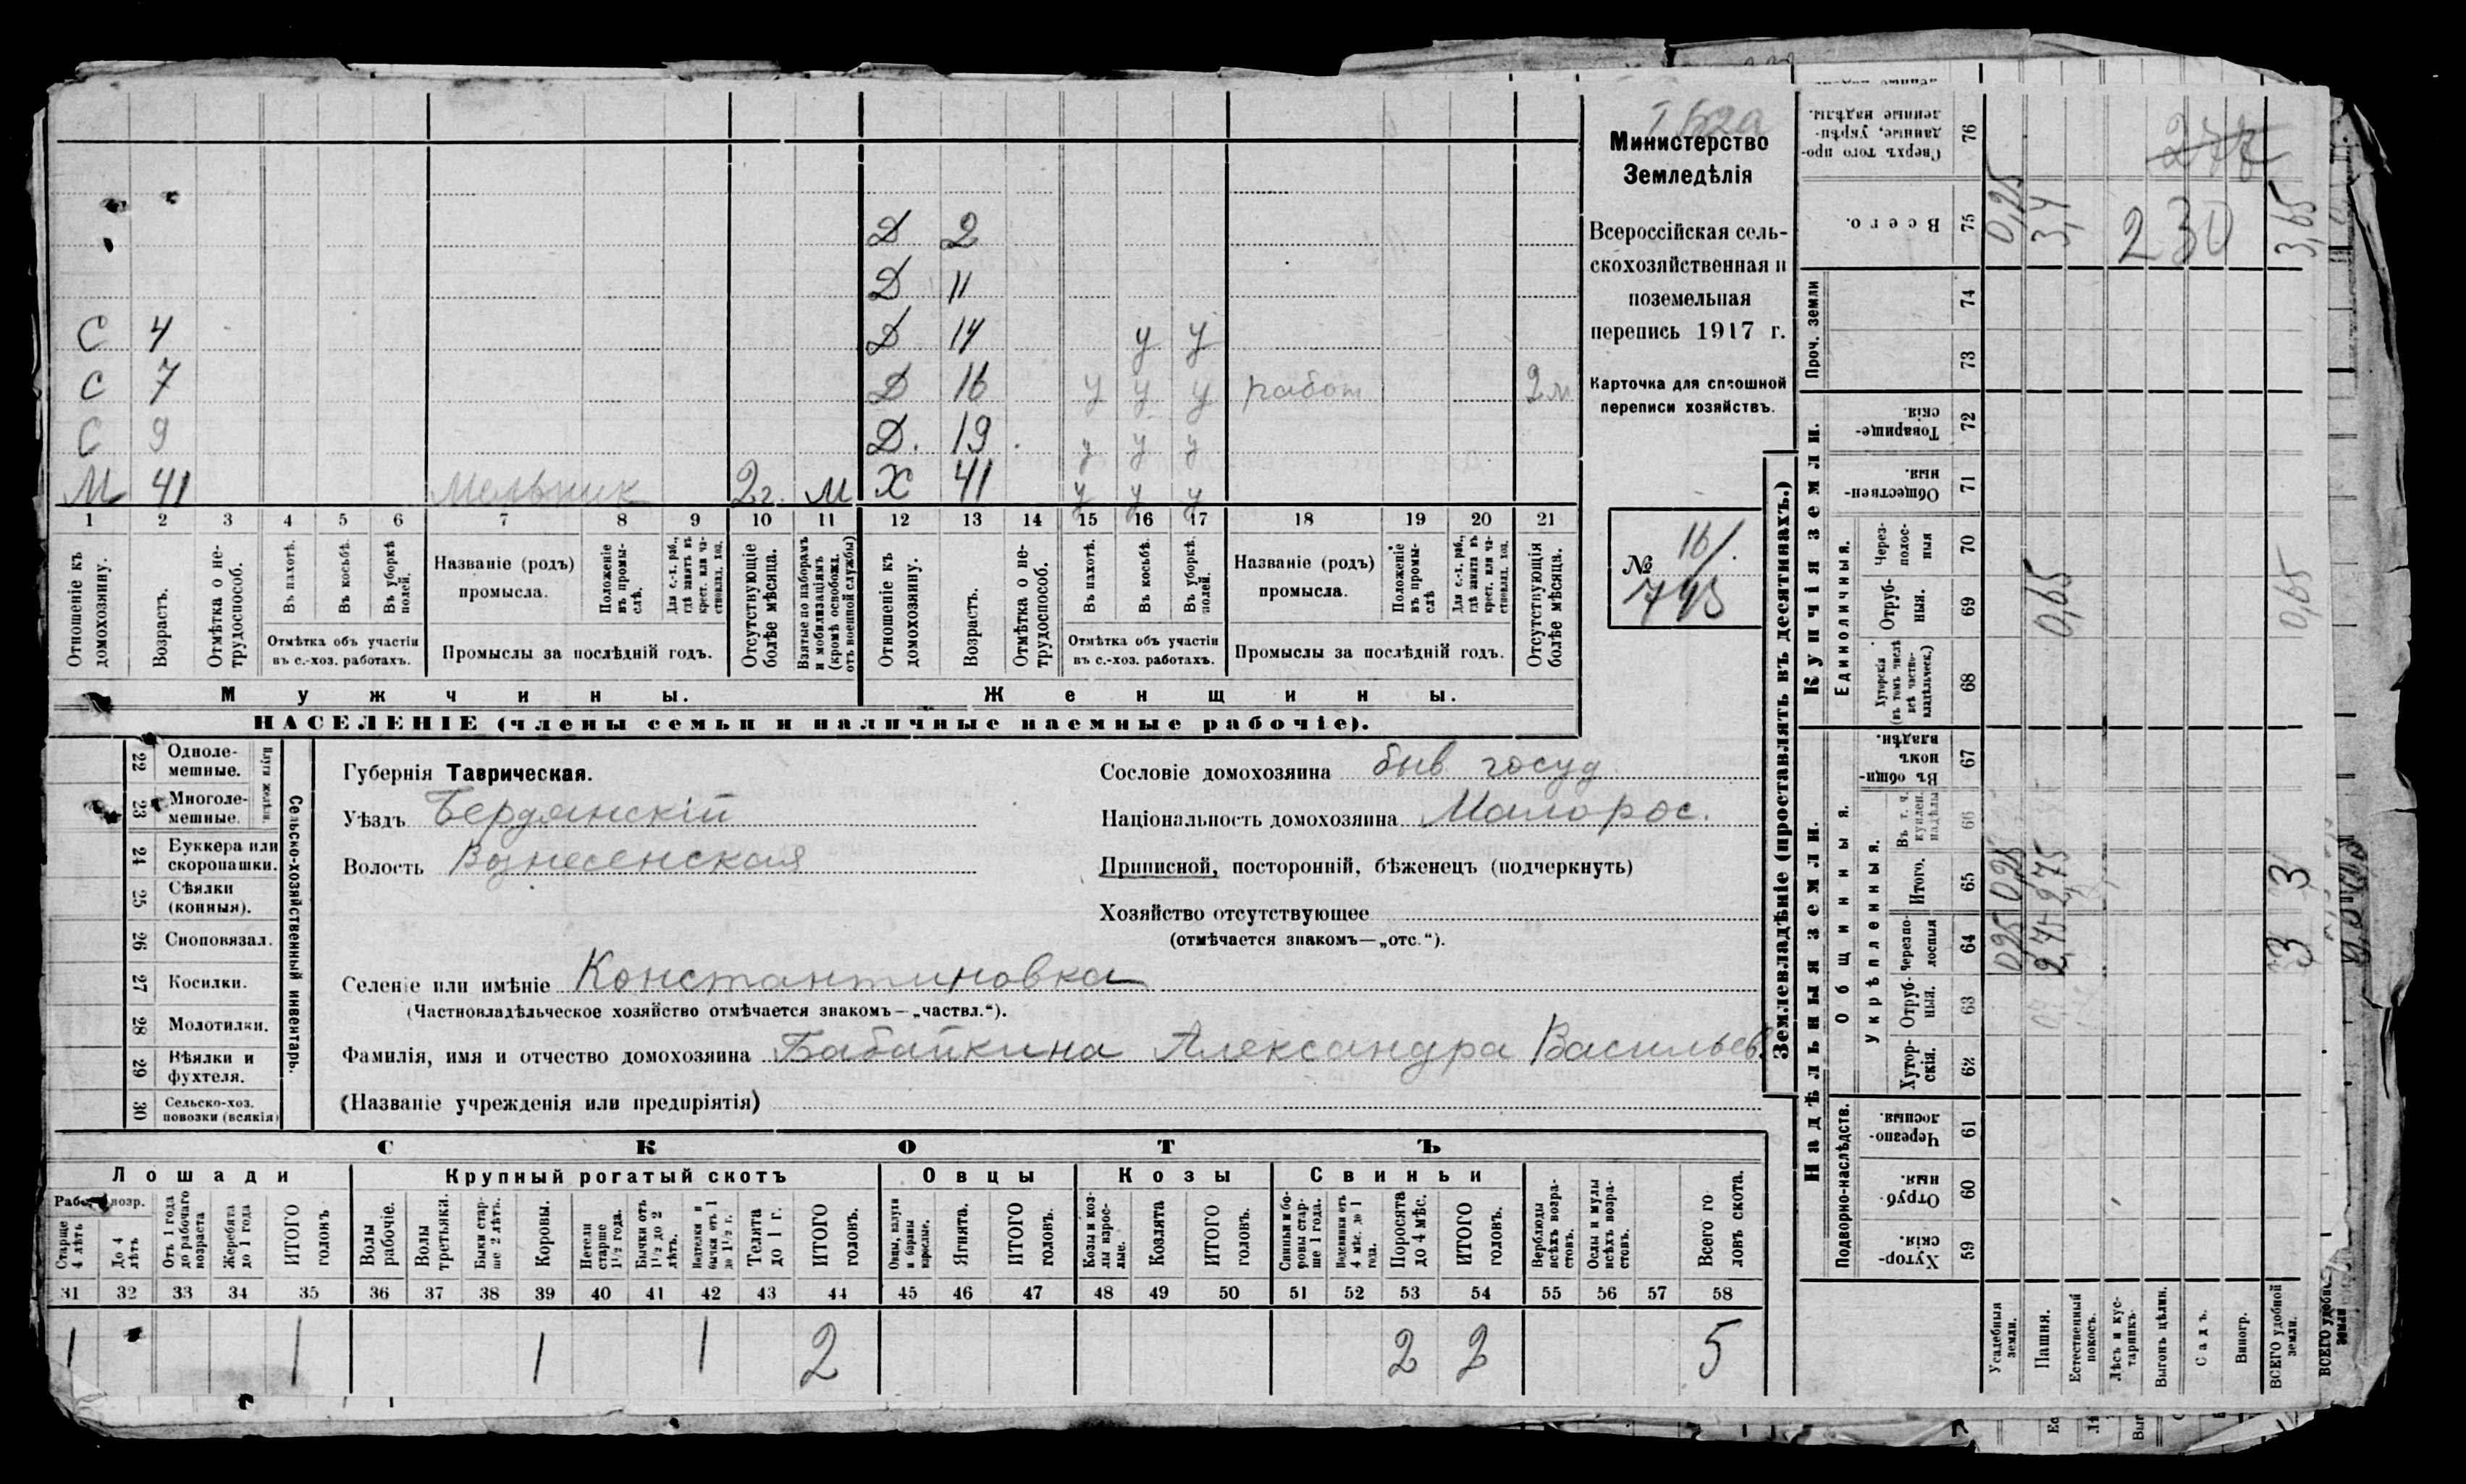 Д 2
Д 11
С 4 Д 14 у у
С 7 Д 16 у у у работ 2м
С 9 Д. 19 у у у
М 41 Мельник 2г. М Х 41 у у у
1 2 3 4 5 6 7 8 9 10 11 12 13 14 15 16 17 18 19 20 21
Отношеніе къ домохозяину.
Возрастъ.
Отмѣтка о нетрудоспособ.
Въ пахотѣ.
Въ косьбѣ.
Въ уборкѣ полей.
Отмѣтка объ участіи
въ с.-хоз. работахъ.
Названіе (родъ)
промысла.
Положеніе въ промыслѣ.
Для с.-х. раб., гдѣ занятъ въ крест. или частновлад. хоз.
Промыслы за послѣдній годъ.
Отсутствующіе болѣе мѣсяца.
Взятые по наборамъ и мобилизаціямъ (кромѣ освобожд. отъ военной службы)
Отношеніе къ домохозяину.
Возрастъ.
Отмѣтка о нетрудоспособ.
Въ пахотѣ.
Въ косьбѣ.
Въ уборкѣ полей.
Отмѣтка объ участіи
въ с.-хоз. работахъ.
Названіе (родъ)
промысла.
Положеніе въ промыслѣ
Для с.-х. раб., гдѣ занята въ крест. или частновлад. хоз.
Промыслы за послѣдній годъ.
Отсутствующія болѣе мѣсяца.
Мужчины. Женщины.
НАСЕЛЕНІЕ (члены семьи и наличные наемные рабочіе).
Министерство
Земледѣлія
Всероссійская сель-
скохозяйственная и
поземельная
перепись 1917 г.
Карточка для сплошной
переписи хозяйствъ.
№ 161.
793
22 Одноле-
мешные.
23 Многоле-
мешные.
24 Буккера или
скоропашки.
25 Сѣялки
(конныя).
26 Сноповязал.
27 Косилки.
28 Молотилки.
29 Вѣялки и
фухтеля.
30 Сельско-хоз.
повозки (всякія)
Сельско-хозяйственный инвентарь.
Губернія Таврическая.
Уѣздъ Бердянскій
Волость Вознесенская
Сословіе домохозяина быв госуд
Національность домохозяина Малорос.
Приписной, посторонній, бѣженецъ (подчеркнуть)
Хозяйство отсутствующее
(отмѣчается знакомъ—„отс.“).
Селеніе или имѣніе Константиновка
(Частновладѣльческое хозяйство отмѣчается знакомъ—„частвл.“).
Фамилія, имя и отчество домохозяина Бабайкина Александра Васильев.
(Названіе учрежденія или предпріятія)
СКОТЪ
Лошади Крупный рогатый скотъ Овцы Козы Свиньи
Старше 4 лѣтъ
До 4 лѣтъ
Отъ 1 года до рабочаго возраста
Жеребята до 1 года
ИТОГО головъ
Волы рабочіе.
Волы третьяки.
Быки старше 2 лѣтъ.
Коровы.
Нетели старше 1½ года.
Бычки отъ 1½ до 2 лѣтъ.
бычки отъ 1 до 1½ г.
Телята до 1 г.
ИТОГО головъ.
Ягнята.
ИТОГО головъ.
Козы и козлы взрослые.
Козлята
ИТОГО головъ.
Свиньи и боровы старше 1 года.
Поросята до 4 мѣс.
ИТОГО головъ.
Верблюды всѣхъ возрастовъ.
Ослы и мулы всѣхъ возрастовъ.
Всего головъ скота.
31 32 33 34 35 36 37 38 39 40 41 42 43 44 45 46 47 48 49 50 51 52 53 54 55 56 57 58
1 1 1 1 2 2 2 5
Землевладѣніе (проставлять въ десятинахъ.)
Надѣльныя земли. Купчія земли. Проч. земли
Подворно-наслѣдств.
Общинныя.
Укрѣпленныя.
Единоличныя.
Хуторскія 59
Отрубныя. 60
Черезполосныя. 61
Хуторскія. 62
Отрубныя. 63
Черезполосныя 64 0,25 2,75 3
Итого. 65 0,25 2,75 3
Въ т. ч. куплен. надѣлы 66
Въ общинномъ владѣн. 67
Хуторскія (въ томъ числѣ всѣ частновладѣльческ.) 68
Отрубныя. 69 0,65 0,65
Черезполосныя 70
Общественныя. 71
Товарищескія. 72
73
74
Всего. 75 0,25 3,4 230 3,65
Сверхъ того проданные, укрѣпленные надѣлы. 76
Усадебныя земли.
Пашня.
Естественный покосъ.
Лѣсъ и кустарникъ.
Выгонъ цѣлин.
Садъ.
Виногр.
ВСЕГО удобной земли.